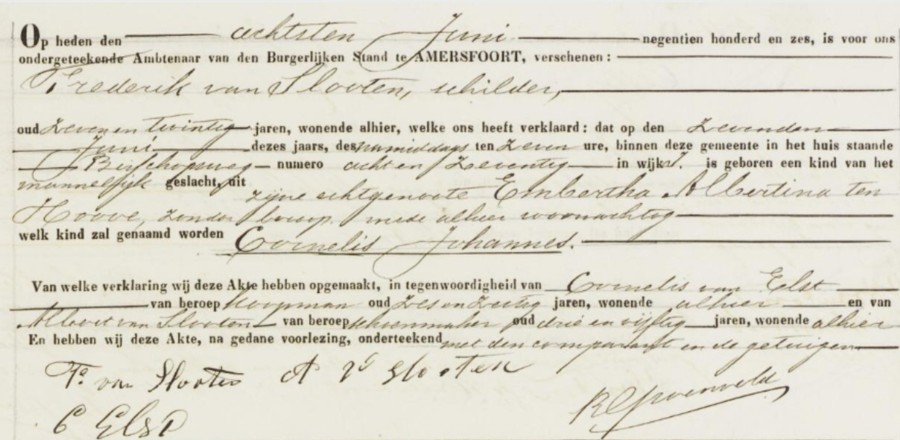 Op heden den achtsten Juni negentien honderd en zes, is voor ons
ondergeteekende Ambtenaar van den Burgerlijken Stand te AMERSFOORT, verschenen:
Frederik van Slooten, schilder,
oud zeven en twintig jaren, wonende alhier, welke ons heeft verklaard: dat op den zevenden
Juni dezes jaars, des namiddags ten zeven ure, binnen deze gemeente in het huis staande
Bisschopsweg numero acht en zeventig in wijk is geboren een kind van het
mannelijk geslacht, uit zijne echtgenoote Embertha Albertina ten
Hoove, zonder beroep, mede alhier woonachtig
welk kind zal genaamd worden Cornelis Johannes.
Van welke verklaring wij deze Akte hebben opgemaakt, in tegenwoordigheid van Cornelis van Elst
van beroep koopman oud zes en zestig jaren, wonende alhier en van
Albert van Slooten van beroep schoenmaker, oud drie en vijftig jaren, wonende alhier
En hebben wij deze Akte, na gedane voorlezing, onderteekend met den comparant en de getuigen
F. van Slooten A v Slooten
C Elst